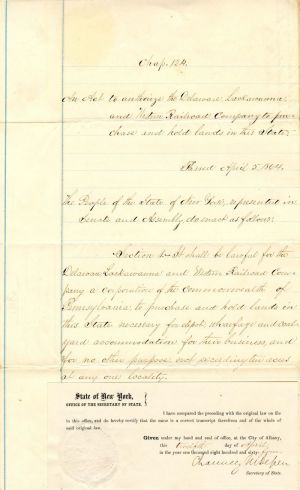 Chap. 124.
An Act to authorize the Delaware Lackawanna
and Western Railroad Company to pur-
chase and hold lands in this State.
Passed April 5, 1864.
The People of the State of New York, represented in
Senate and Assembly, do enact as follows:
Section 1. It shall be lawful for the
Delaware Lackawanna and Western Railroad Com-
pany a corporation of the Commonwealth of
Pennsylvania, to purchase and hold lands in
this State necessary for depot, wharfage and coal
yard accommodation for their business, and
for no other purpose not exceeding ten acres
at any one locality.
State of New York,
OFFICE OF THE SECRETARY OF STATE.
I have compared the preceding with the original law on file
in this office, and do hereby certify that the same is a correct transcript therefrom and of the whole of
said original law.
Given under my hand and seal of office, at the City of Albany,
this day of April,
in the year one thousand eight hundred and sixty-four
Chauncey M Depew
Secretary of State.